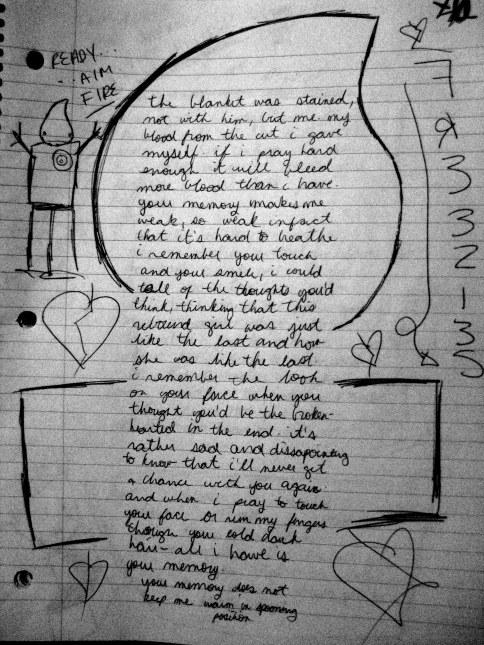 READY...
...AIM
FIRE
the blankit was stained,
not with him, but me my
blood from the cut i gave
myself. if i pray hard
enough it will bleed
more blood than i have.
your memory makes me
weak, so weak infact
that it's hard to breathe
i remember your touch
and your smile, i could
tell of the thoughts you'd
think, thinking that this
rebound girl was just
like the last and how
she was like the last.
i remember the look
on your face when you
thought you'd be the broken-
hearted in the end. it's
rather sad and dissapointing
to know that i'll never get
a chance with you again.
and when i pray to touch
your face or run my fingers
through your cold dark
hair - all i have is
your memory.
your memory does not
keep me warm in spooning
position
7
3
3
2
1
3
5